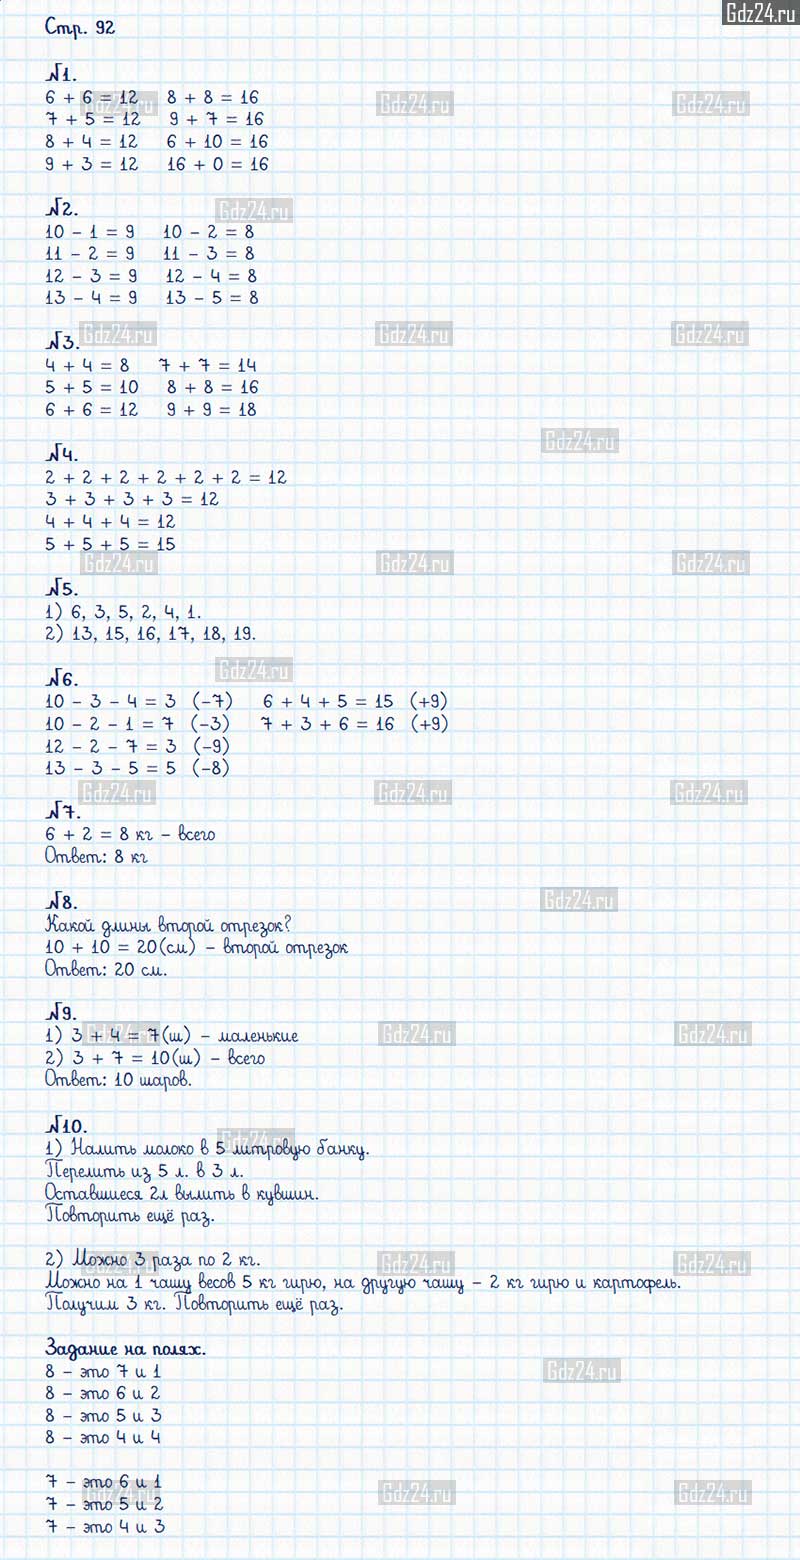 Gdz24.ru
Стр. 92
№1.
6 + 6 = 12 8 + 8 = 16
7 + 5 = 12 9 + 7 = 16
8 + 4 = 12 6 + 10 = 16
9 + 3 = 12 16 + 0 = 16
№2.
10 - 1 = 9 10 - 2 = 8
11 - 2 = 9 11 - 3 = 8
12 - 3 = 9 12 - 4 = 8
13 - 4 = 9 13 - 5 = 8
№3.
4 + 4 = 8 7 + 7 = 14
5 + 5 = 10 8 + 8 = 16
6 + 6 = 12 9 + 9 = 18
№4.
2 + 2 + 2 + 2 + 2 + 2 = 12
3 + 3 + 3 + 3 = 12
4 + 4 + 4 = 12
5 + 5 + 5 = 15
№5.
1) 6, 3, 5, 2, 4, 1.
2) 13, 15, 16, 17, 18, 19.
№6.
10 - 3 - 4 = 3 (-7) 6 + 4 + 5 = 15 (+9)
10 - 2 - 1 = 7 (-3) 7 + 3 + 6 = 16 (+9)
12 - 2 - 7 = 3 (-9)
13 - 3 - 5 = 5 (-8)
№7.
6 + 2 = 8 кг - всего
Ответ: 8 кг
№8.
Какой длины второй отрезок?
10 + 10 = 20(см) - второй отрезок
Ответ: 20 см.
№9.
1) 3 + 4 = 7(ш) - маленькие
2) 3 + 7 = 10(ш) - всего
Ответ: 10 шаров.
№10.
1) Налить молоко в 5 литровую банку.
Перелить из 5 л. в 3 л.
Оставшиеся 2л вылить в кувшин.
Повторить ещё раз.
2) Можно 3 раза по 2 кг.
Можно на 1 чашу весов 5 кг гирю, на другую чашу - 2 кг гирю и картофель.
Получим 3 кг. Повторить ещё раз.
Задание на полях.
8 - это 7 и 1
8 - это 6 и 2
8 - это 5 и 3
8 - это 4 и 4
7 - это 6 и 1
7 - это 5 и 2
7 - это 4 и 3